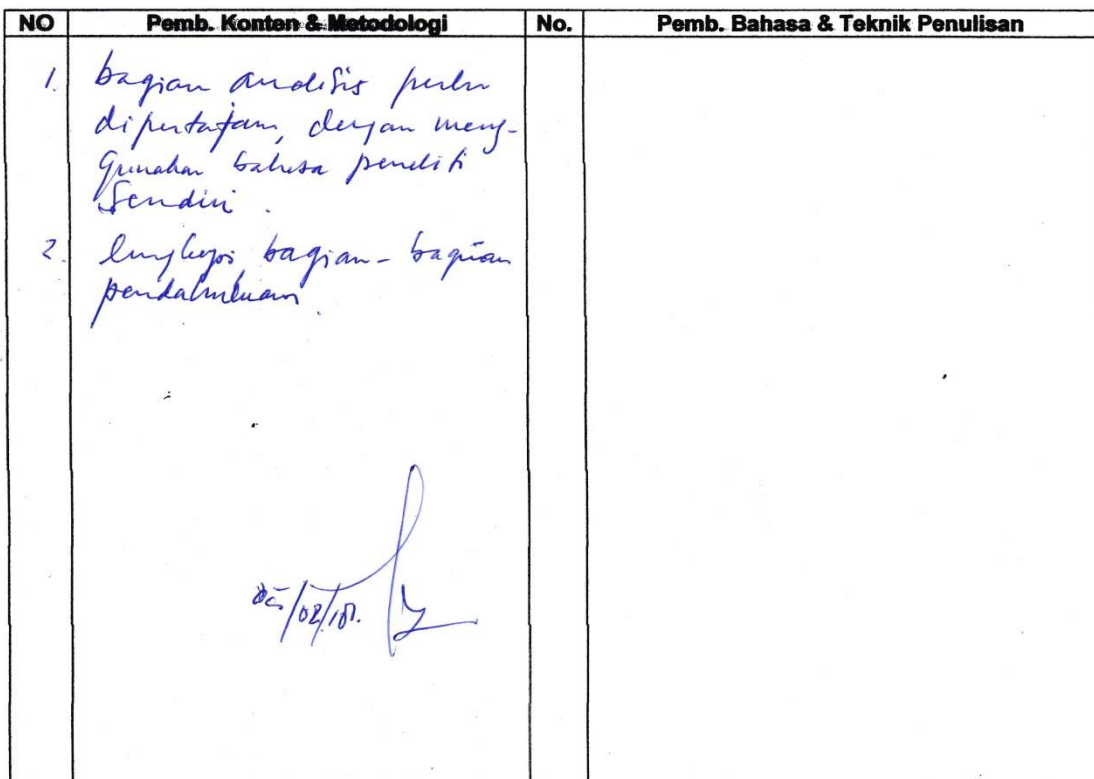 NO Pemb. Konten & Metodologi No. Pemb. Bahasa & Teknik Penulisan
1. bagian analisis perlu
dipertajam, dengan meng-
gunakan bahasa peneliti
sendiri.
2. lengkapi bagian-bagian
pendahuluan.
05/02/18.